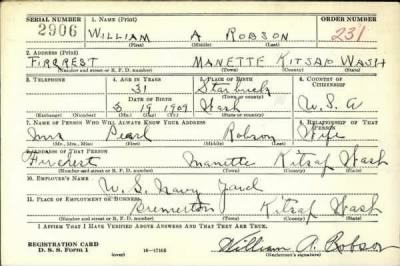 SERIAL NUMBER 1. NAME (Print) ORDER NUMBER
2906 WILLIAM A ROBSON 231
(First) (Middle) (Last)
2. ADDRESS (Print)
FIRCREST MANETTE KITSAP WASH
(Number and street or R. F. D. number) (Town) (County) (State)
3. TELEPHONE 4. AGE IN YEARS 5. PLACE OF BIRTH 6. COUNTRY OF CITIZENSHIP
31 Starbuck
DATE OF BIRTH (Town or county)
5 19 1909 Wash U.S.A
(Exchange) (Number) (Mo.) (Day) (Yr.) (State or country)
7. NAME OF PERSON WHO WILL ALWAYS KNOW YOUR ADDRESS 8. RELATIONSHIP OF THAT PERSON
Mrs Pearl Robson Wife
(Mr., Mrs., Miss) (First) (Middle) (Last)
9. ADDRESS OF THAT PERSON
Fircrest Manette Kitsap Wash
(Number and street or R. F. D. number) (Town) (County) (State)
10. EMPLOYER'S NAME
U.S. Navy Yard
11. PLACE OF EMPLOYMENT OR BUSINESS
Bremerton Kitsap Wash
(Number and street or R. F. D. number) (Town) (County) (State)
I AFFIRM THAT I HAVE VERIFIED ABOVE ANSWERS AND THAT THEY ARE TRUE.
REGISTRATION CARD
D. S. S. Form 1 (over) 16—17105 William A. Robson
(Registrant's signature)